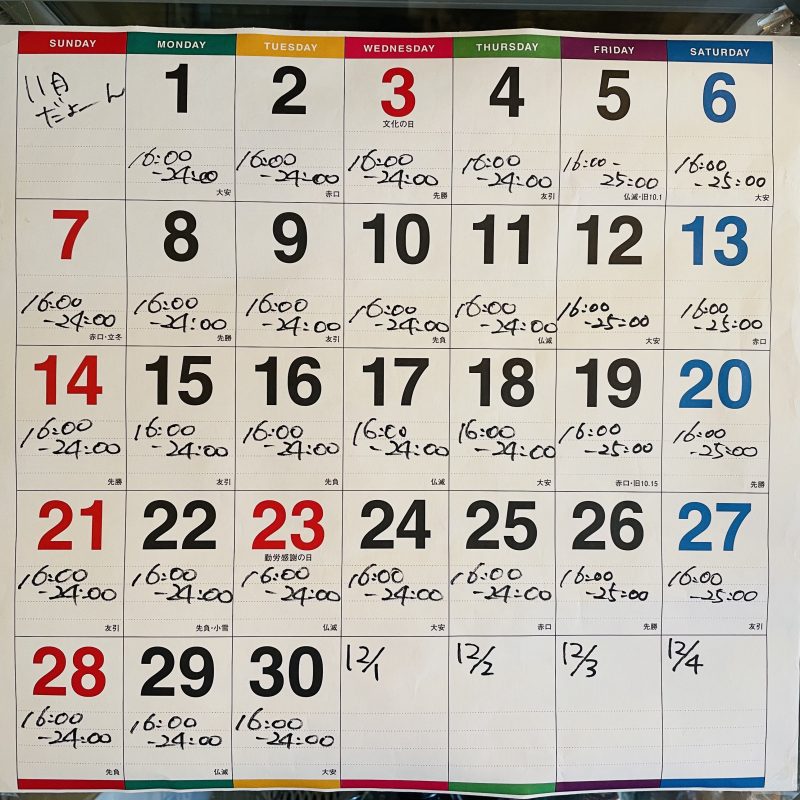 SUNDAY MONDAY TUESDAY WEDNESDAY THURSDAY FRIDAY SATURDAY
11月
だよーん
1
16:00
-24:00
大安
2
16:00
-24:00
赤口
3
文化の日
16:00
-24:00
先勝
4
16:00
-24:00
友引
5
16:00-
25:00
仏滅・旧10.1
6
16:00
-25:00
大安
7
16:00
-24:00
赤口・立冬
8
16:00
-24:00
先勝
9
16:00
-24:00
友引
10
16:00
-24:00
先負
11
16:00
-24:00
仏滅
12
16:00
-25:00
大安
13
16:00
-25:00
赤口
14
16:00
-24:00
先勝
15
16:00
-24:00
友引
16
16:00
-24:00
先負
17
16:00
-24:00
仏滅
18
16:00
-24:00
大安
19
16:00
-25:00
赤口・旧10.15
20
16:00
-25:00
先勝
21
16:00
-24:00
友引
22
16:00
-24:00
先負・小雪
23
勤労感謝の日
16:00
-24:00
仏滅
24
16:00
-24:00
大安
25
16:00
-24:00
赤口
26
16:00
-25:00
先勝
27
16:00
-25:00
友引
28
16:00
-24:00
先負
29
16:00
-24:00
仏滅
30
16:00
-24:00
大安
12/1
12/2
12/3
12/4